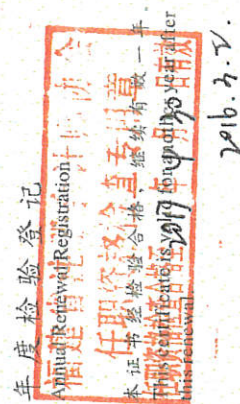 年度检验登记
Annual Renewal Registration
福建省注册会计师协会
任职资格检查专用章
本证书经检验合格，继续有效一年
This certificate is valid for another year after
this renewal.
2016.3.2.